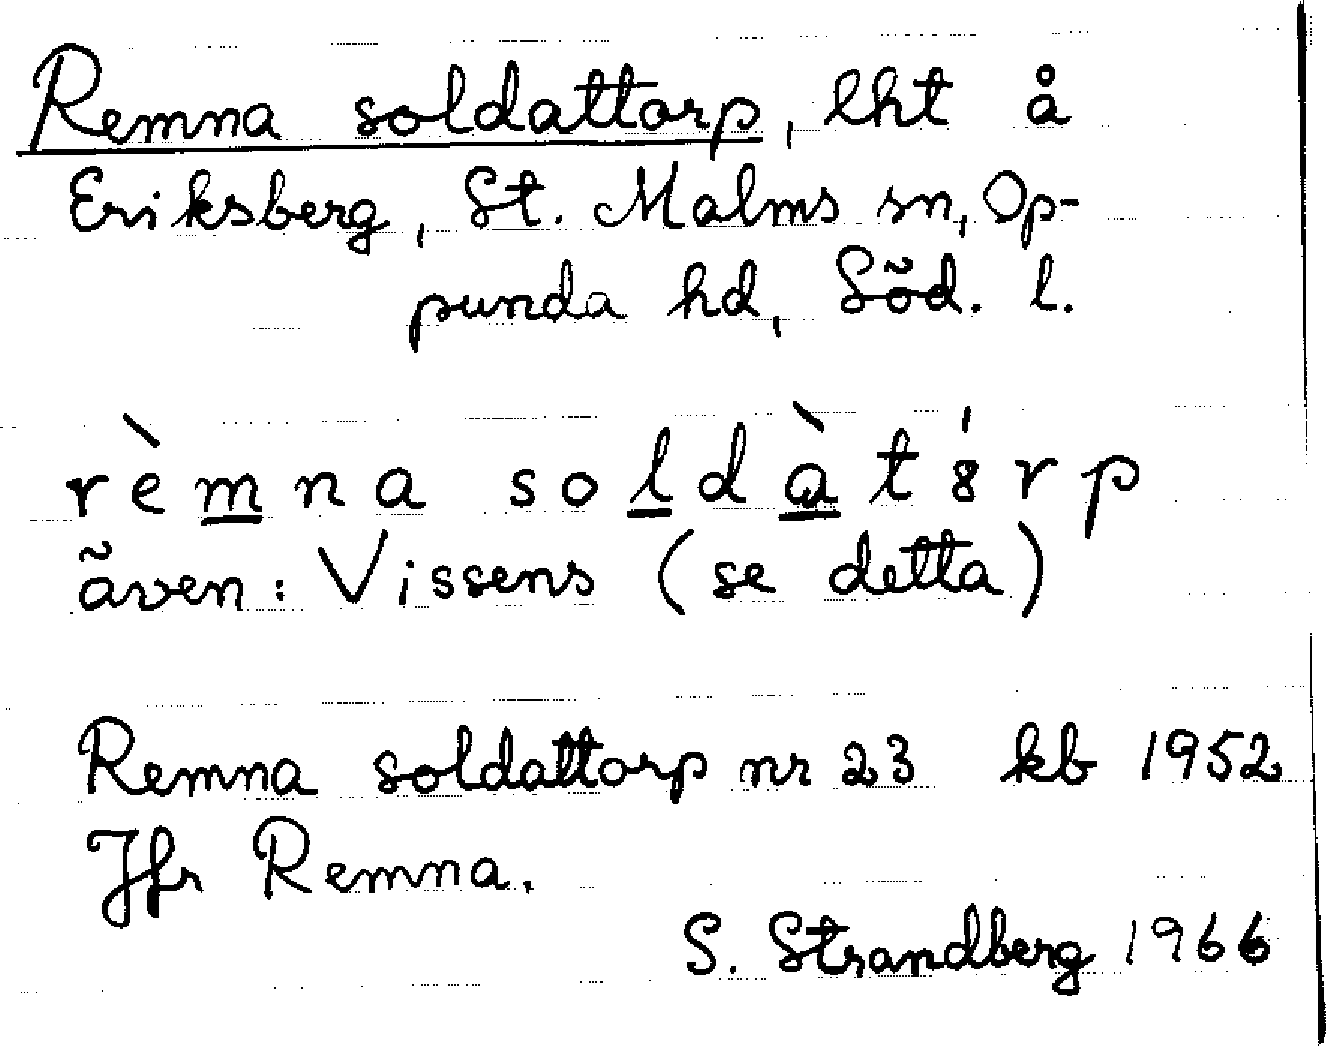 Remna soldattorp, lht å
Eriksberg, St. Malms sn, Op-
punda hd, Söd. l.
rèmna soldàt8́rp
även: Vissens (se detta)
Remna soldattorp nr 23 kb 1952
Jfr Remna.
S. Strandberg 1966